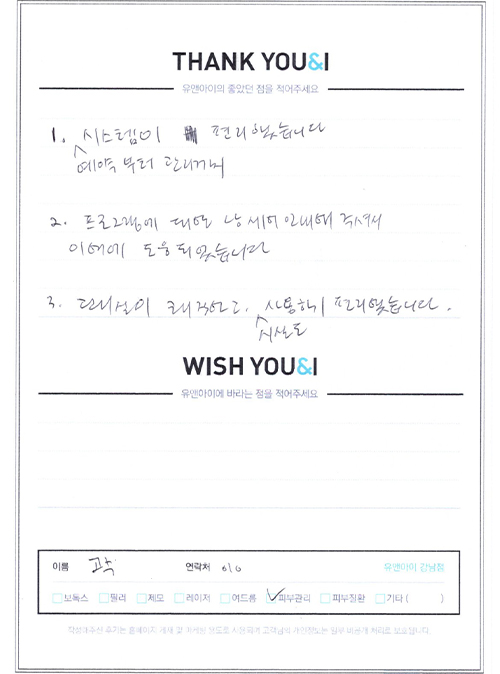 THANK YOU&I
유앤아이의 좋았던 점을 적어주세요
1. 시스템이 편리했습니다
예약부터 관리까지
2. 프로그램에 대한 상세히 안내해 주셔서
이해에 도움 되었습니다
3. 관리실이 쾌적하고, 사용하기 편리했습니다.
시설도
WISH YOU&I
유앤아이에 바라는 점을 적어주세요
이름 연락처 010 유앤아이 강남점
보톡스 필러 제모 레이저 여드름 피부관리 피부질환 기타 ( )